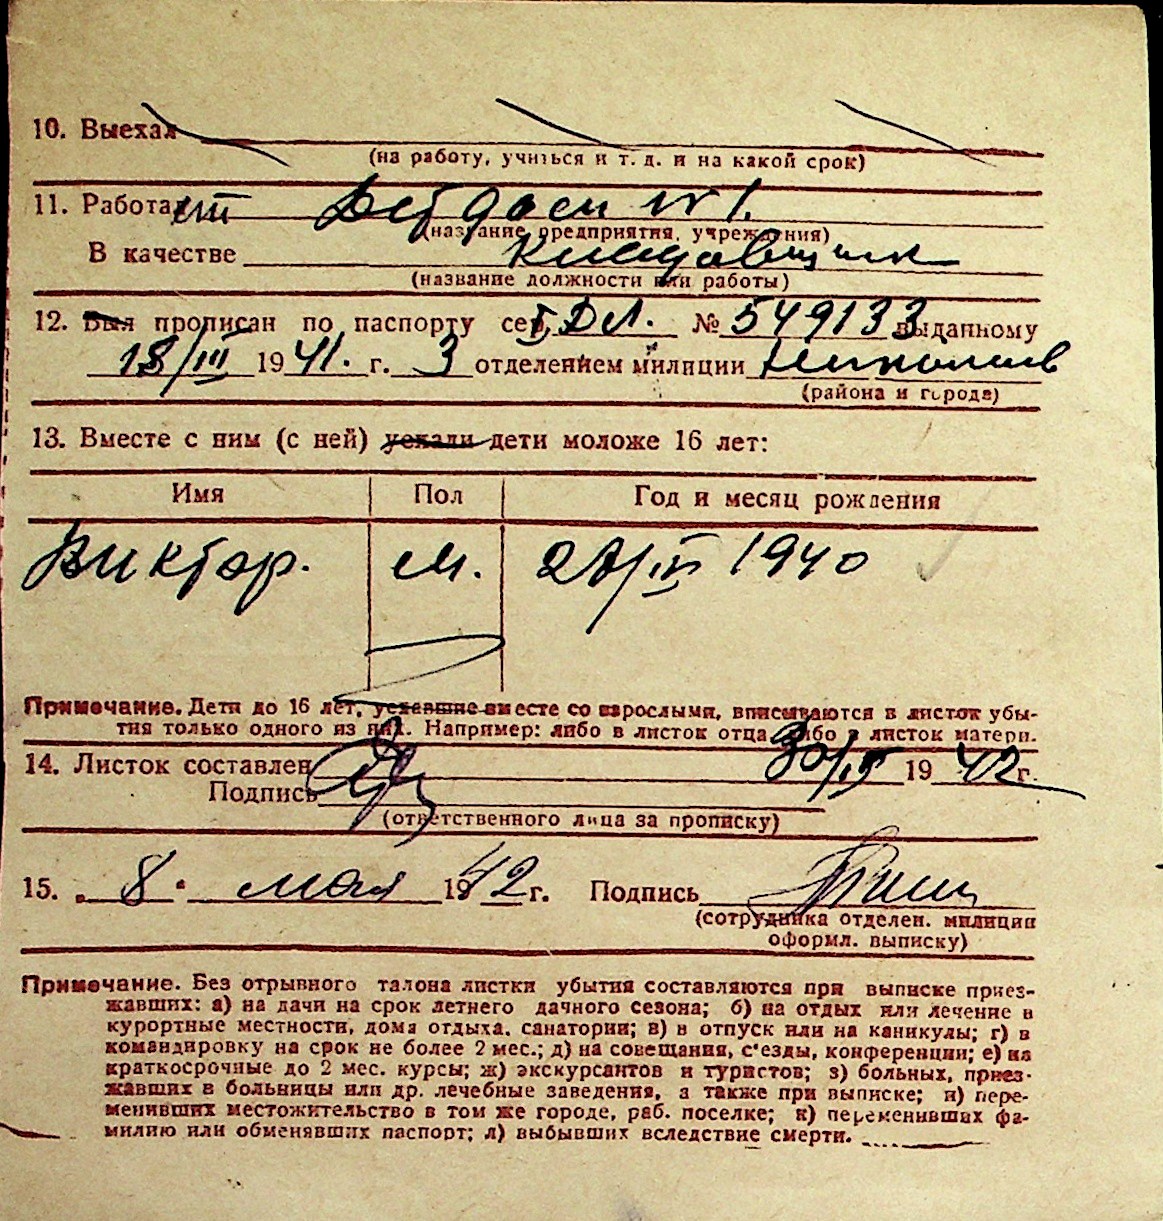 10. Выехал
(на работу, учиться и т. д. и на какой срок)
11. Работает Детдом № 1.
(название предприятия, учреждения)
В качестве кладовщик
(название должности или работы)
12. Был прописан по паспорту сер. I ДЛ. № 549133 выданному
18/III 1941. г. 3 отделением милиции
(района и города)
13. Вместе с ним (с ней) уехали дети моложе 16 лет:
Имя Пол Год и месяц рождения
Виктор. м. 1940
Примечание. Дети до 16 лет, уехавшие вместе со взрослыми, вписываются в листок убы-
тия только одного из них. Например: либо в листок отца либо в листок матери.
14. Листок составлен 30/IV 1942г.
Подпись
(ответственного лица за прописку)
15. „8“ мая 1942г. Подпись
(сотрудника отделен. милиции
оформл. выписку)
Примечание. Без отрывного талона листки убытия составляются при выписке приез-
жавших: а) на дачи на срок летнего дачного сезона; б) на отдых или лечение в
курортные местности, дома отдыха, санатории; в) в отпуск или на каникулы; г) в
командировку на срок не более 2 мес.; д) на совещания, с'езды, конференции; е) на
краткосрочные до 2 мес. курсы; ж) экскурсантов и туристов; з) больных, приез-
жавших в больницы или др. лечебные заведения, а также при выписке; и) пере-
менивших местожительство в том же городе, раб. поселке; к) переменивших фа-
милию или обменявших паспорт; л) выбывших вследствие смерти.